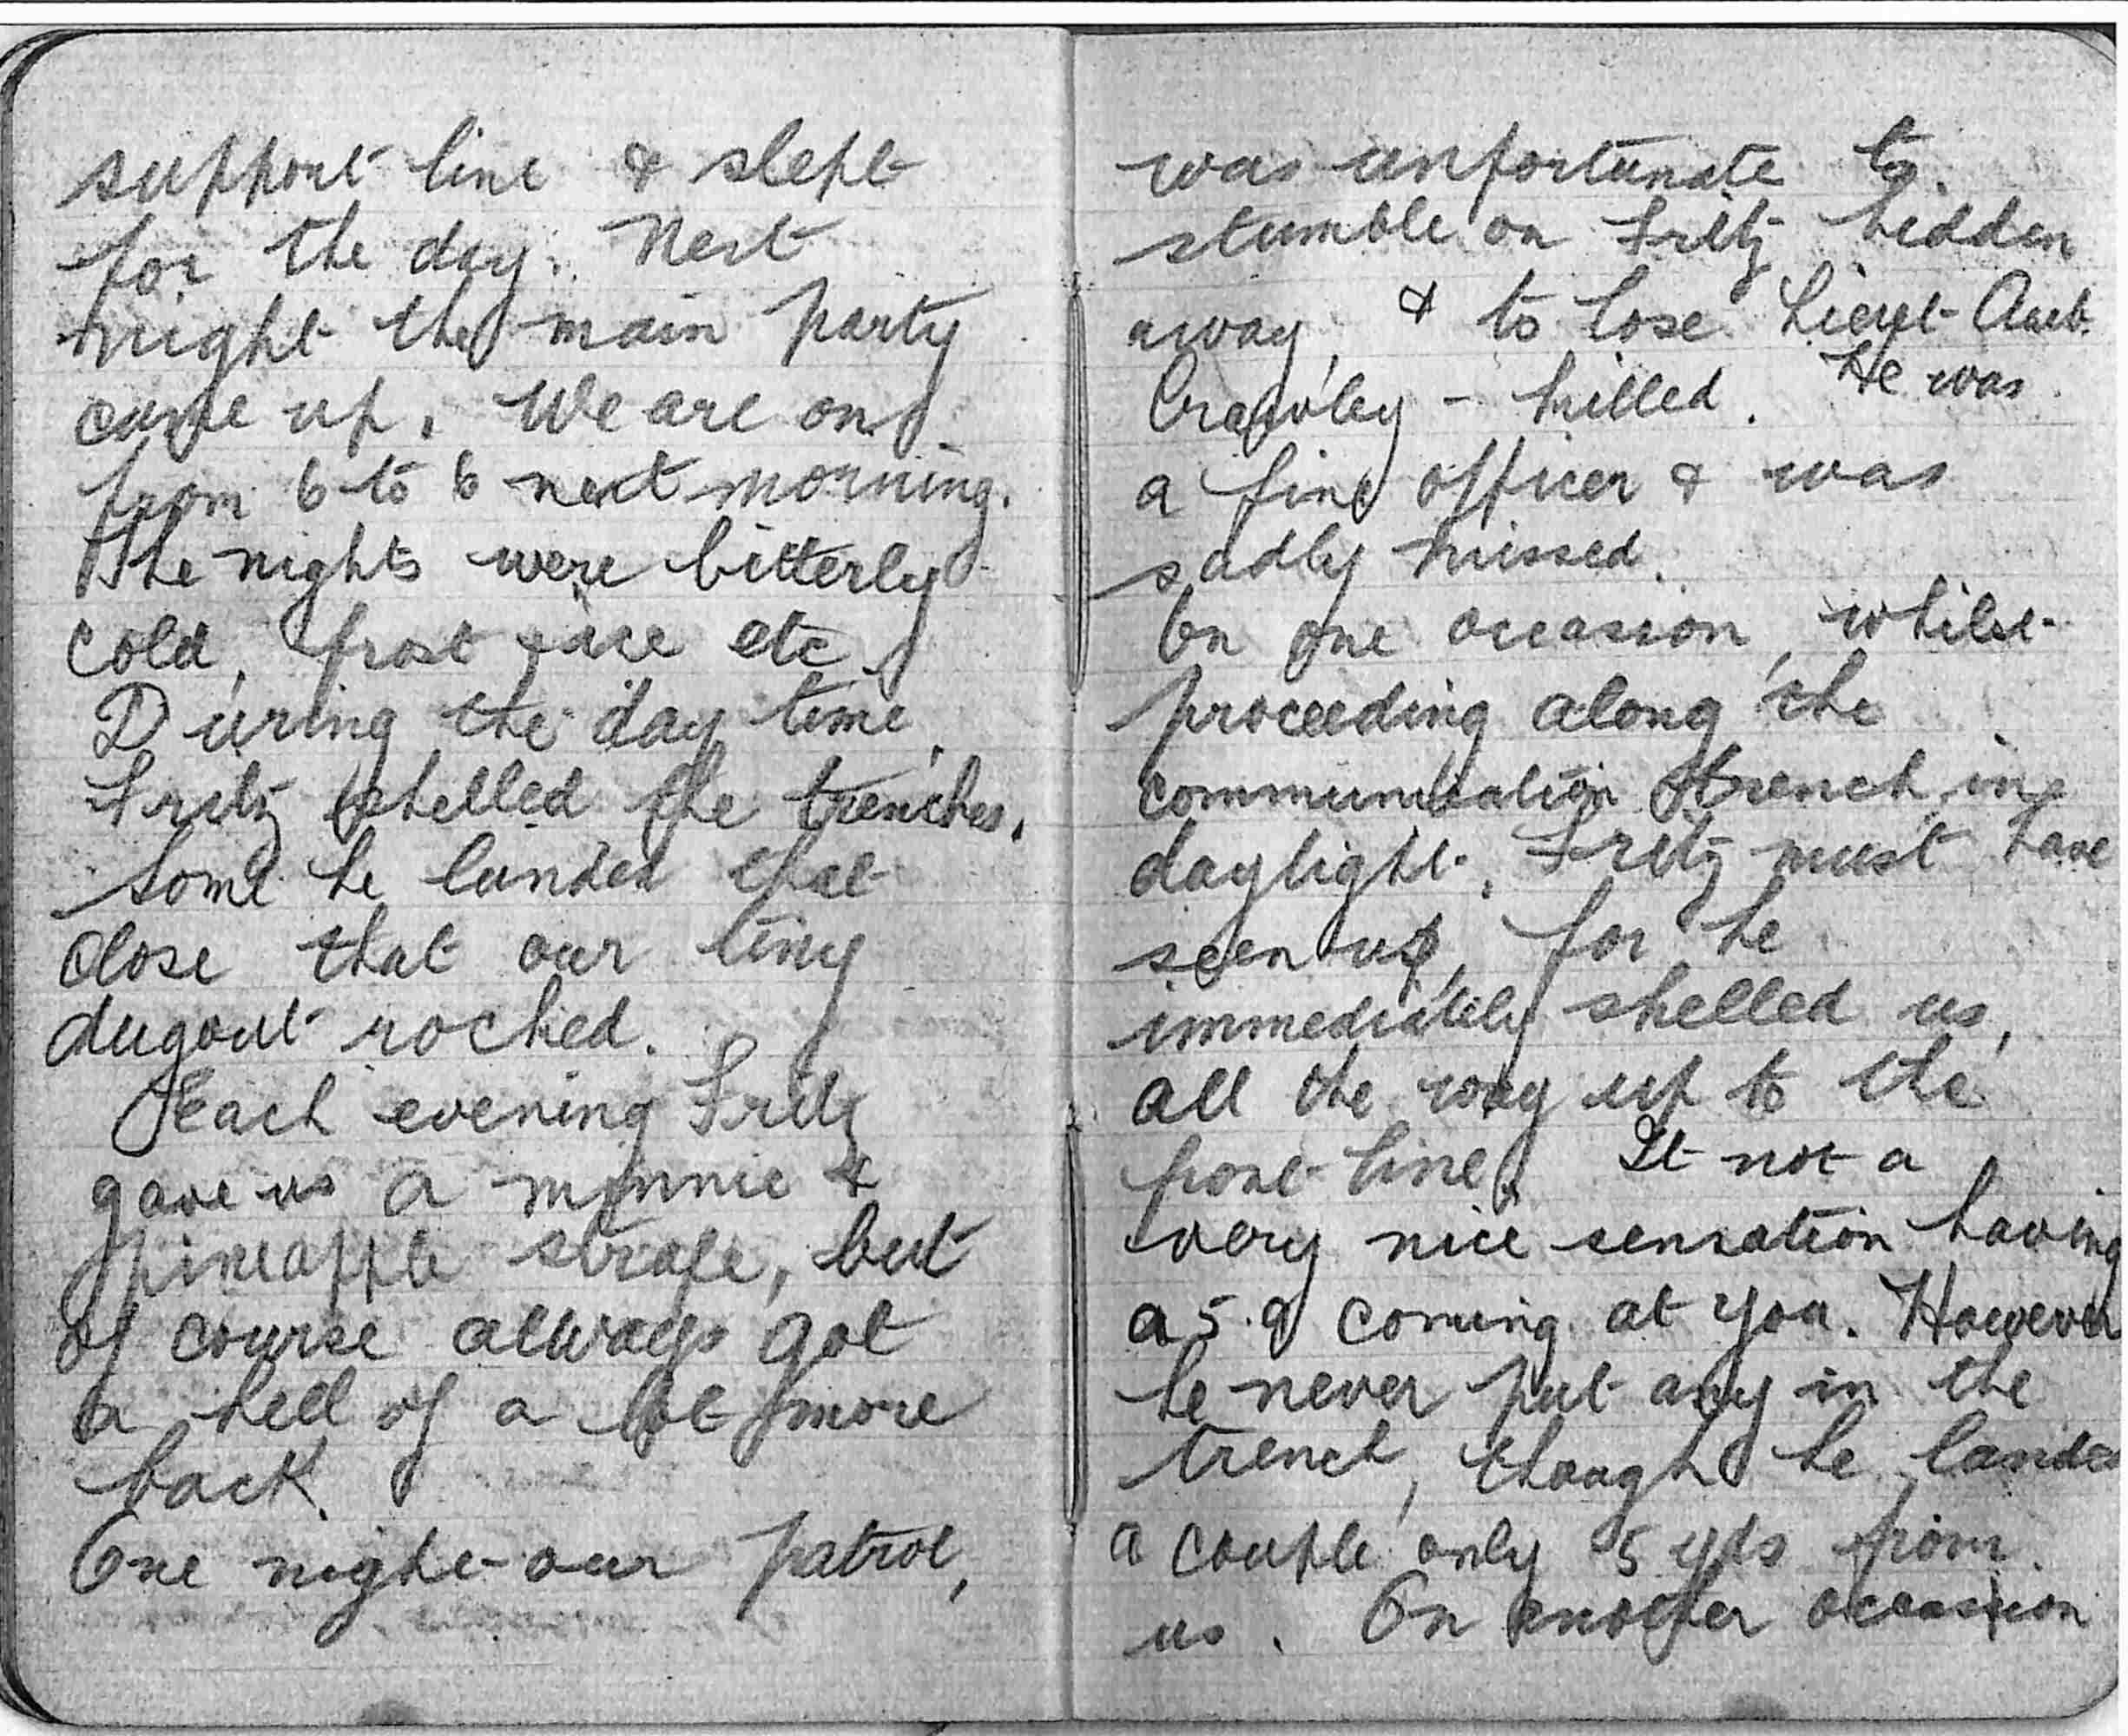 support line & slept
for the day. Next
night the main party
came up. We are on
from 6 to 6 next morning.
The nights were bitterly
cold, frost &ice etc
During the day time,
Fritz shelled the trenches.
Some he landed that
close that our tiny
dugout rocked.
Each evening Fritz
gave us a minnie &
pineapple strafe, but
of course always got
a hell of a lot more
back.
One night our patrol,
was unfortunate to
stumble on Fritz hidden
away, & to lose Lieut
Crawley - killed. He was
a fine officer & was
sadly missed.
On one occasion, whilst
proceeding along the
communication trench, in
daylight, Fritz must have
seen us, for he
immediately shelled us,
all the way up to the
front line. It not a
very nice sensation having
a 5.9 coming at you. However
he never put any in the
trench, though he landed
a couple only 5 yds from
us. On another occassion